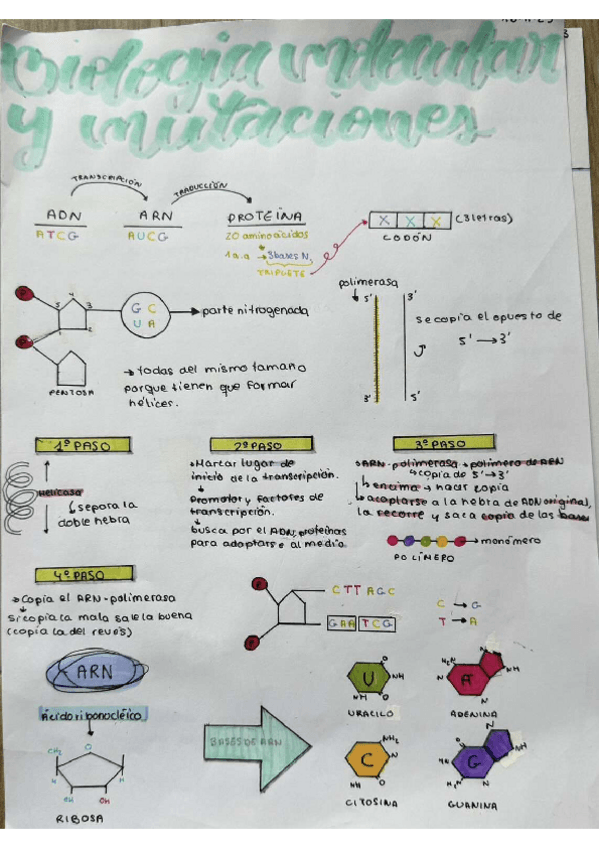 Biología molecular
y mutaciones
TRANSCRIPCIÓN
TRADUCCIÓN
ADN
ARN
PROTEÍNA
ATCG
AUCG
20 aminoácidos
1a.a → 3bases N.
TRIPLETE
X X X (3letras)
CODÓN
P
P
5 4 3
1 2
G C
U A
parte nitrogenada
PENTOSA
→ todas del mismo tamaño
porque tienen que formar
hélices.
polimerasa
5' 3'
3' 5'
se copia el opuesto de
5' → 3'
1º PASO
Helicasa
separa la
doble hebra
2º PASO
Marcar lugar de
inicio de la transcripción.
Promotor y factores de
transcripción.
busca por el ADN, proteínas
para adaptarse al medio
3º PASO
ARN-polimerasa → polímero de ARN
copia de 5' → 3'
enzima → hacer copia
adaptarse a la hebra de ADN original,
la recorre y saca copia de las bases
monómero
POLÍMERO
4º PASO
Copia el ARN-polimerasa
si copia la mala sale la buena
(copia la del revés)
P
P
CTTAGC
GAATCG
C → G
T → A
ARN
Ácido ribonocléico
CH₂ O
H H
OH OH
RIBOSA
BASES DE ARN
U
O NH
NH O
URACILO
A
H₂N N NH
N N
ADENINA
C
NH₂ N
NH O
CITOSINA
G
O N
HN NH
H₂N N
GUANINA